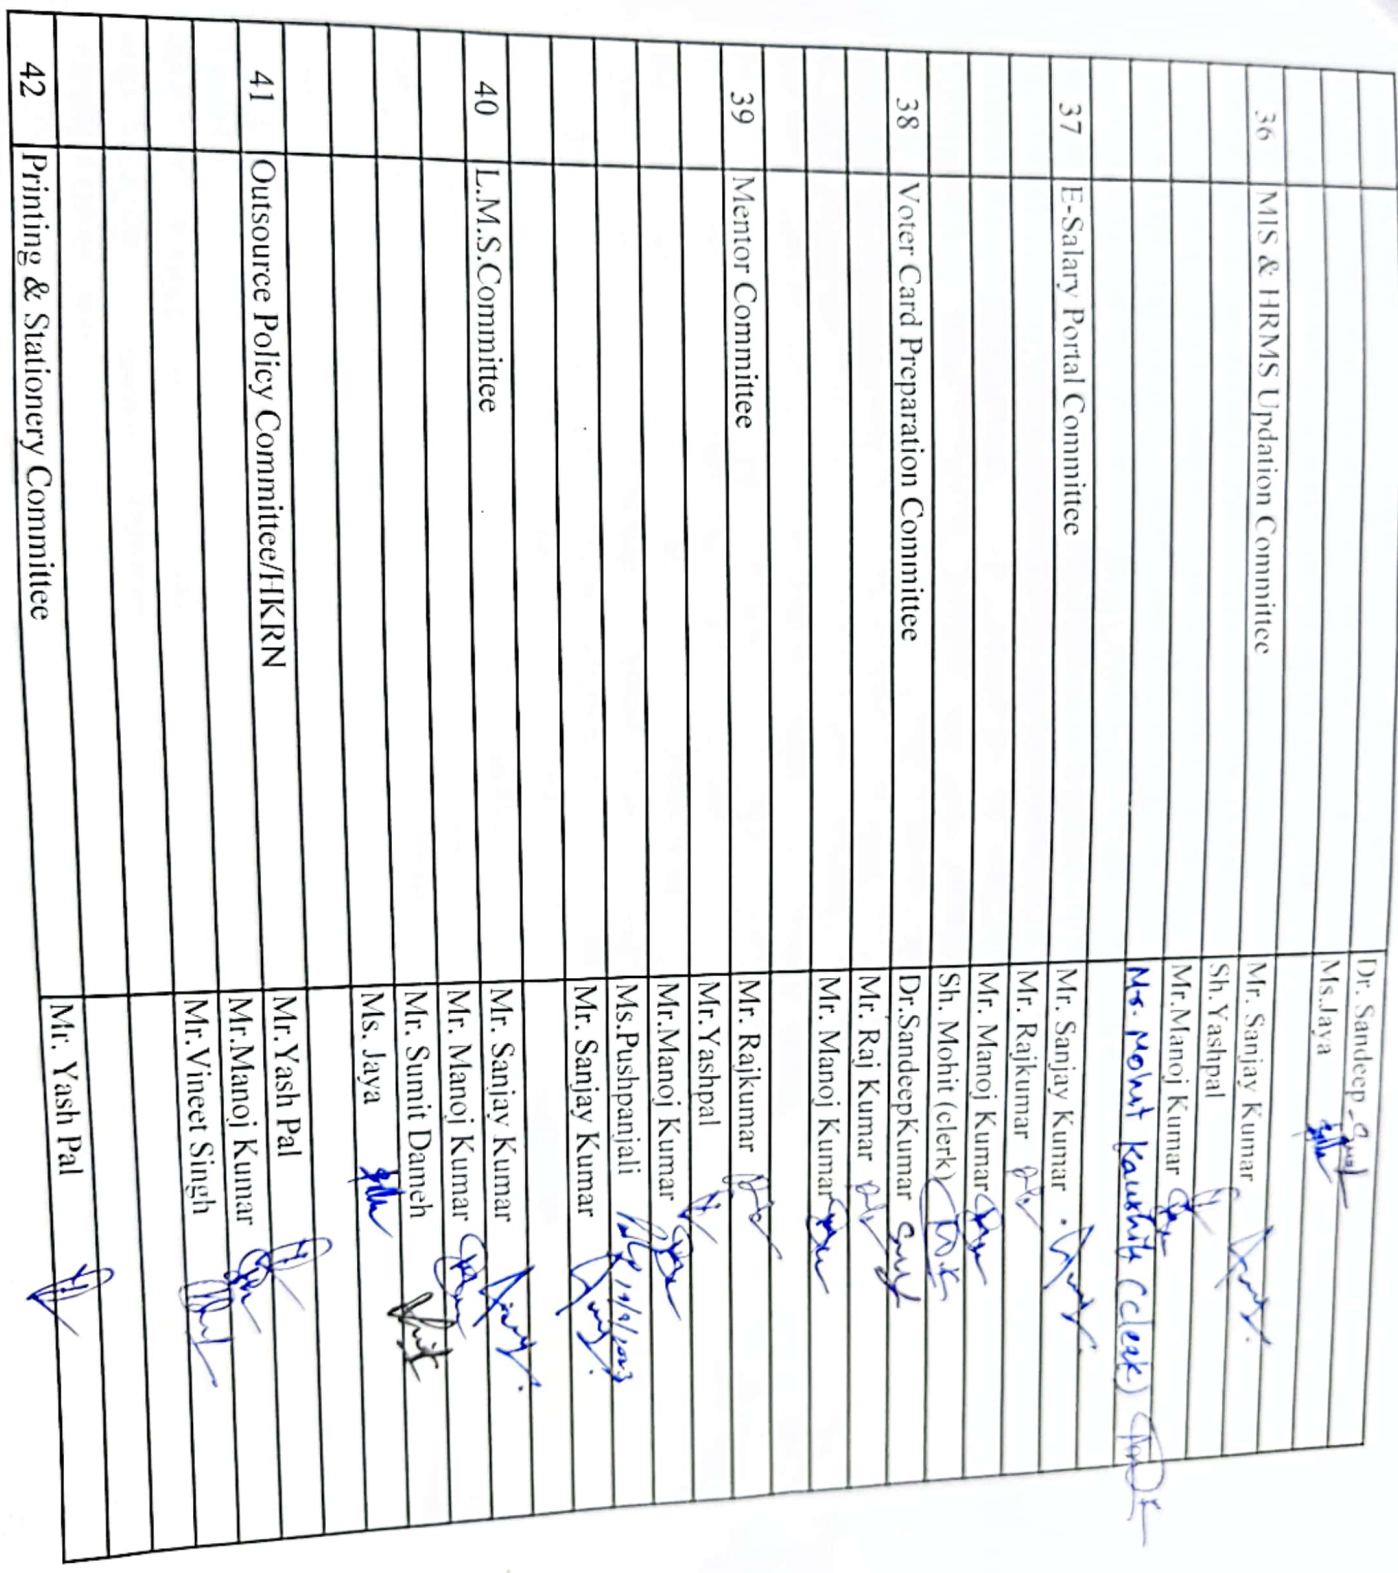 Dr. Sandeep
Ms.Jaya
36 MIS & HRMS Updation Committee Mr. Sanjay Kumar
Sh.Yashpal
Mr.Manoj Kumar
Mr. Mohit Kaushik (Clerk)
37 E-Salary Portal Committee Mr. Sanjay Kumar
Mr. Rajkumar
Mr. Manoj Kumar
Sh. Mohit (clerk)
38 Voter Card Preparation Committee Dr.SandeepKumar
Mr. Raj Kumar
Mr. Manoj Kumar
39 Mentor Committee Mr. Rajkumar
Mr.Yashpal
Mr.Manoj Kumar
Ms.Pushpanjali
Mr. Sanjay Kumar
40 L.M.S.Committee Mr. Sanjay Kumar
Mr. Manoj Kumar
Mr. Sumit Dameh
Ms. Jaya
41 Outsource Policy Committee/HKRN Mr.Yash Pal
Mr.Manoj Kumar
Mr.Vineet Singh
42 Printing & Stationery Committee Mr. Yash Pal